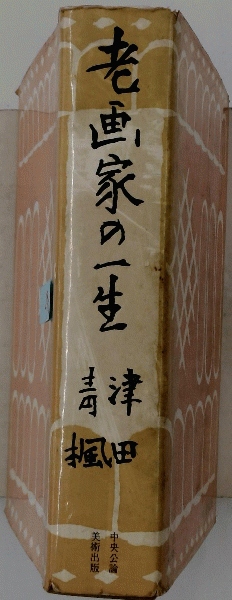 老画家の一生
津田
青楓
中央公論
美術出版